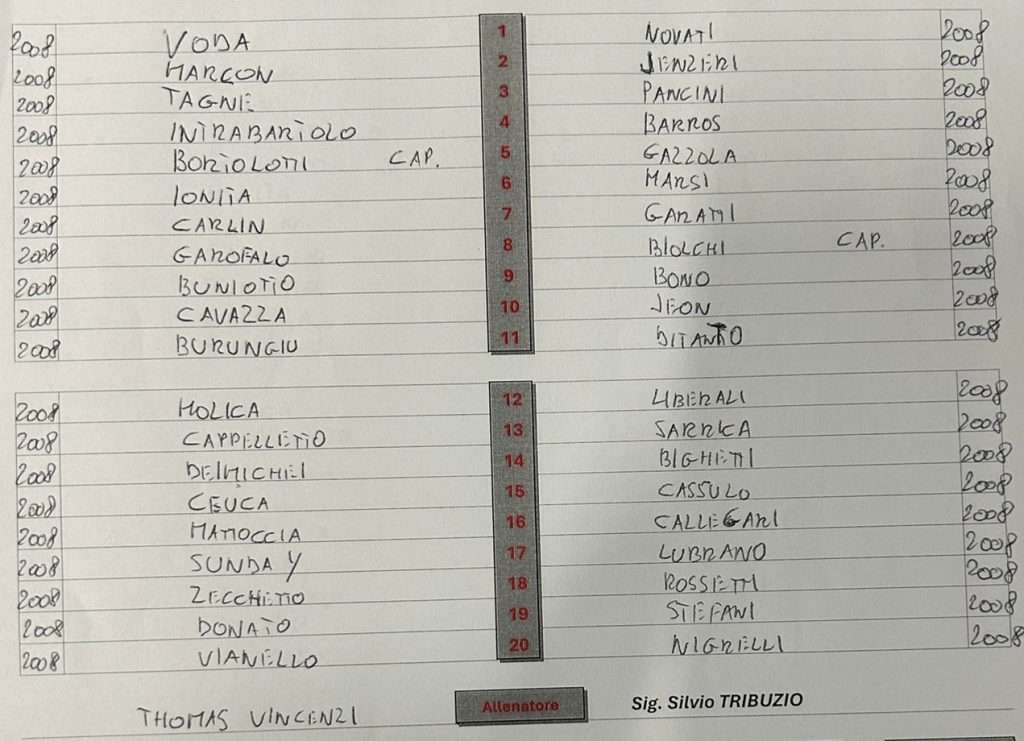 2008 VODA 1 NOVATI 2008
2008 MARCON 2 JENZERI 2008
2008 TAGNE 3 PANCINI 2008
2008 INTRABARTOLO 4 BARROS 2008
2008 BORTOLOTTI CAP. 5 GAZZOLA 2008
2008 IONITA 6 MARSI 2008
2008 CARLIN 7 GARATTI 2008
2008 GAROFALO 8 BIOLCHI CAP. 2008
2008 BUNIOTTO 9 BONO 2008
2008 CAVAZZA 10 JEON 2008
2008 BURUNGIU 11 DITANTO 2008
2008 MOLICA 12 LIBERALI 2008
2008 CAPPELLETTO 13 SARRICA 2008
2008 DEIMICHEI 14 BIGHETTI 2008
2008 CEUCA 15 CASSULO 2008
2008 MATTOCCIA 16 CALLEGARI 2008
2008 SUNDAY 17 LUBRANO 2008
2008 ZECCHETTO 18 ROSSETTI 2008
2008 DONATO 19 STEFANI 2008
2008 VIANELLO 20 NIGRELLI 2008
THOMAS VINCENZI Allenatore Sig. Silvio TRIBUZIO